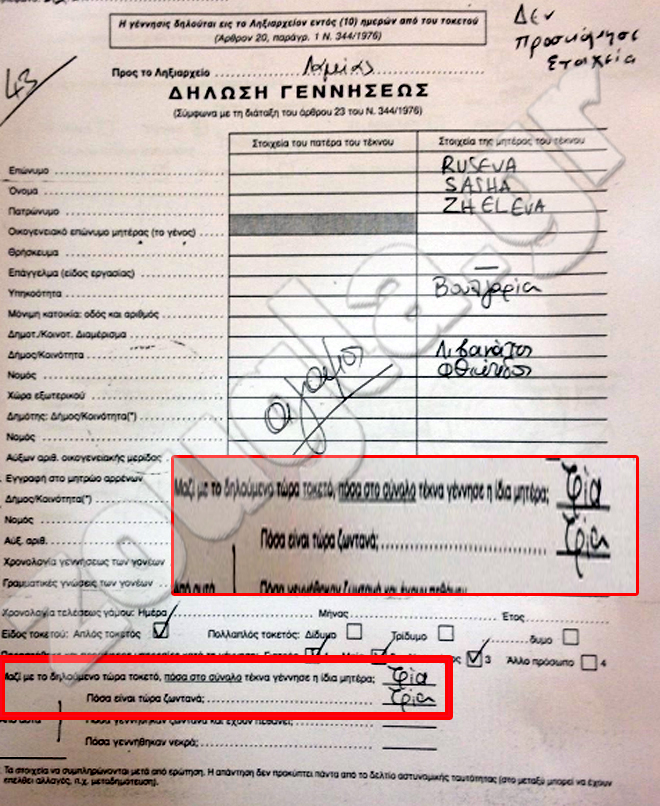 Η γέννησις δηλούται εις το Ληξιαρχείον εντός (10) ημερών από του τοκετού
(Άρθρον 20, παράγρ. 1 Ν. 344/1976)
Δεν
προσκόμησε
στοιχεία
43
Προς το Ληξιαρχείο Λαμίας
ΔΗΛΩΣΗ ΓΕΝΝΗΣΕΩΣ
(Σύμφωνα με τη διάταξη του άρθρου 23 του Ν. 344/1976)
Στοιχεία του πατέρα του τέκνου Στοιχεία της μητέρας του τέκνου
Επώνυμο RUSEVA
Όνομα SASHA
Πατρώνυμο ZHELEVA
Οικογενειακό επώνυμο μητέρας (το γένος)
Θρήσκευμα
Επάγγελμα (είδος εργασίας) —
Υπηκοότητα Βουλγαρία
Μόνιμη κατοικία: οδός και αριθμός
Δημοτ./Κοινοτ. Διαμέρισμα
Δήμος/Κοινότητα Λιβανάτες
Νομός Φθιώτιδος
Χώρα εξωτερικού
άγαμος
Δημότης: Δήμος/Κοινότητα(*)
Νομός
Αύξων αριθ. οικογενειακής μερίδος
Εγγραφή στο μητρώο αρρένων
Δήμος/Κοινότητα(*)
Νομός
Αύξ. αριθ.
Χρονολογία γεννήσεως των γονέων
Γραμματικές γνώσεις των γονέων
Μαζί με το δηλούμενο τώρα τοκετό, πόσα στο σύνολο τέκνα γέννησε η ίδια μητέρα; τρία
Πόσα είναι τώρα ζωντανά; τρία
Από αυτά Πόσα γεννήθηκαν ζωντανά και έχουν πεθάνει
Χρονολογία τελέσεως γάμου: Ημέρα Μήνας Έτος
Είδος τοκετού: Απλός τοκετός Πολλαπλός τοκετός: Δίδυμο Τρίδυμο δυμο
3 Άλλο πρόσωπο 4
Μαζί με το δηλούμενο τώρα τοκετό, πόσα στο σύνολο τέκνα γέννησε η ίδια μητέρα; τρία
Πόσα είναι τώρα ζωντανά; τρία
Από αυτά Πόσα γεννήθηκαν ζωντανά και έχουν πεθάνει;
Πόσα γεννήθηκαν νεκρά;
Τα στοιχεία να συμπληρώνονται μετά από ερώτηση. Η απάντηση δεν προκύπτει πάντα από το δελτίο αστυνομικής ταυτότητας (στο μεταξύ μπορεί να έχουν
επέλθει αλλαγές, π.χ. μεταδημότευση).
zougla.gr